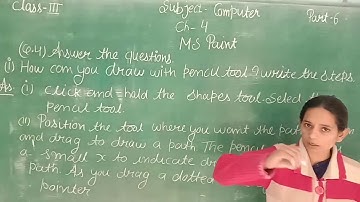 Class-III Subject- Computer Part-6
Ch-4
MS Paint
(Q.4) Answer the questions.
(i) How can you draw with pencil tool? write the steps.
As. (i) click and hold the shapes tool. Select the
pencil tool.
(ii) Position the tool where you want the pat
and drag to draw a path The penci
a small x to indicate dr
path As you drag a dotte
pointer